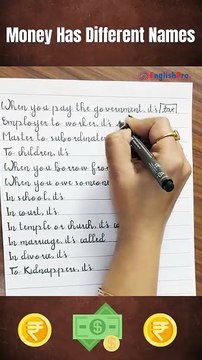 Money Has Different Names
EnglishPro
When you pay the government, it's tax
Employer to worker, it's
Master to subordinate
To children, it's
When you borrow from
When you owe someone
In school, it's
In court, it's
In temple or church, it's
In marriage, it's called
In divorce, it's
To Kidnappers, it's